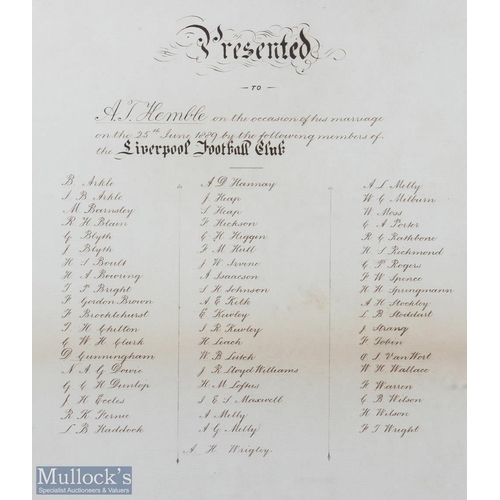 Presented
— TO —
A.T. Kemble on the occasion of his marriage
on the 25th June 1889 by the following members of
the Liverpool Football Club
B Arkle
S B Arkle
M Barnsley
R H Blain
G Blyth
J Blyth
H S Boult
H A Bowring
T P Bright
F Gordon Brown
F Brocklehurst
T H Chilton
C W H Clark
D Cunningham
N A G Dowie
G C H Dunlop
J H Eccles
R K Fernie
S B Haddock
A D Hannay
J Heap
S Heap
F Hickson
C H Higgin
F M Hull
J W Irvine
A Isaacson
S H Johnson
A E Kelk
E Kewley
S R Kewley
H Leach
W B Leitch
J R Lloyd Williams
H M Loftus
S E S Maxwell
A Melly
A G Melly
A H Wrigley
A L Melly
W G Melburn
W Moss
C A Porter
R G Rathbone
H S Richmond
C P Rogers
F W Spence
H H Springmann
A H Stockley
L B Stoddart
J Strang
F Tobin
O S Van Wort
W H Wallace
F Warren
C B Wilson
H Wilson
F T Wright
Mullock's
Specialist Auctioneers & Valuers